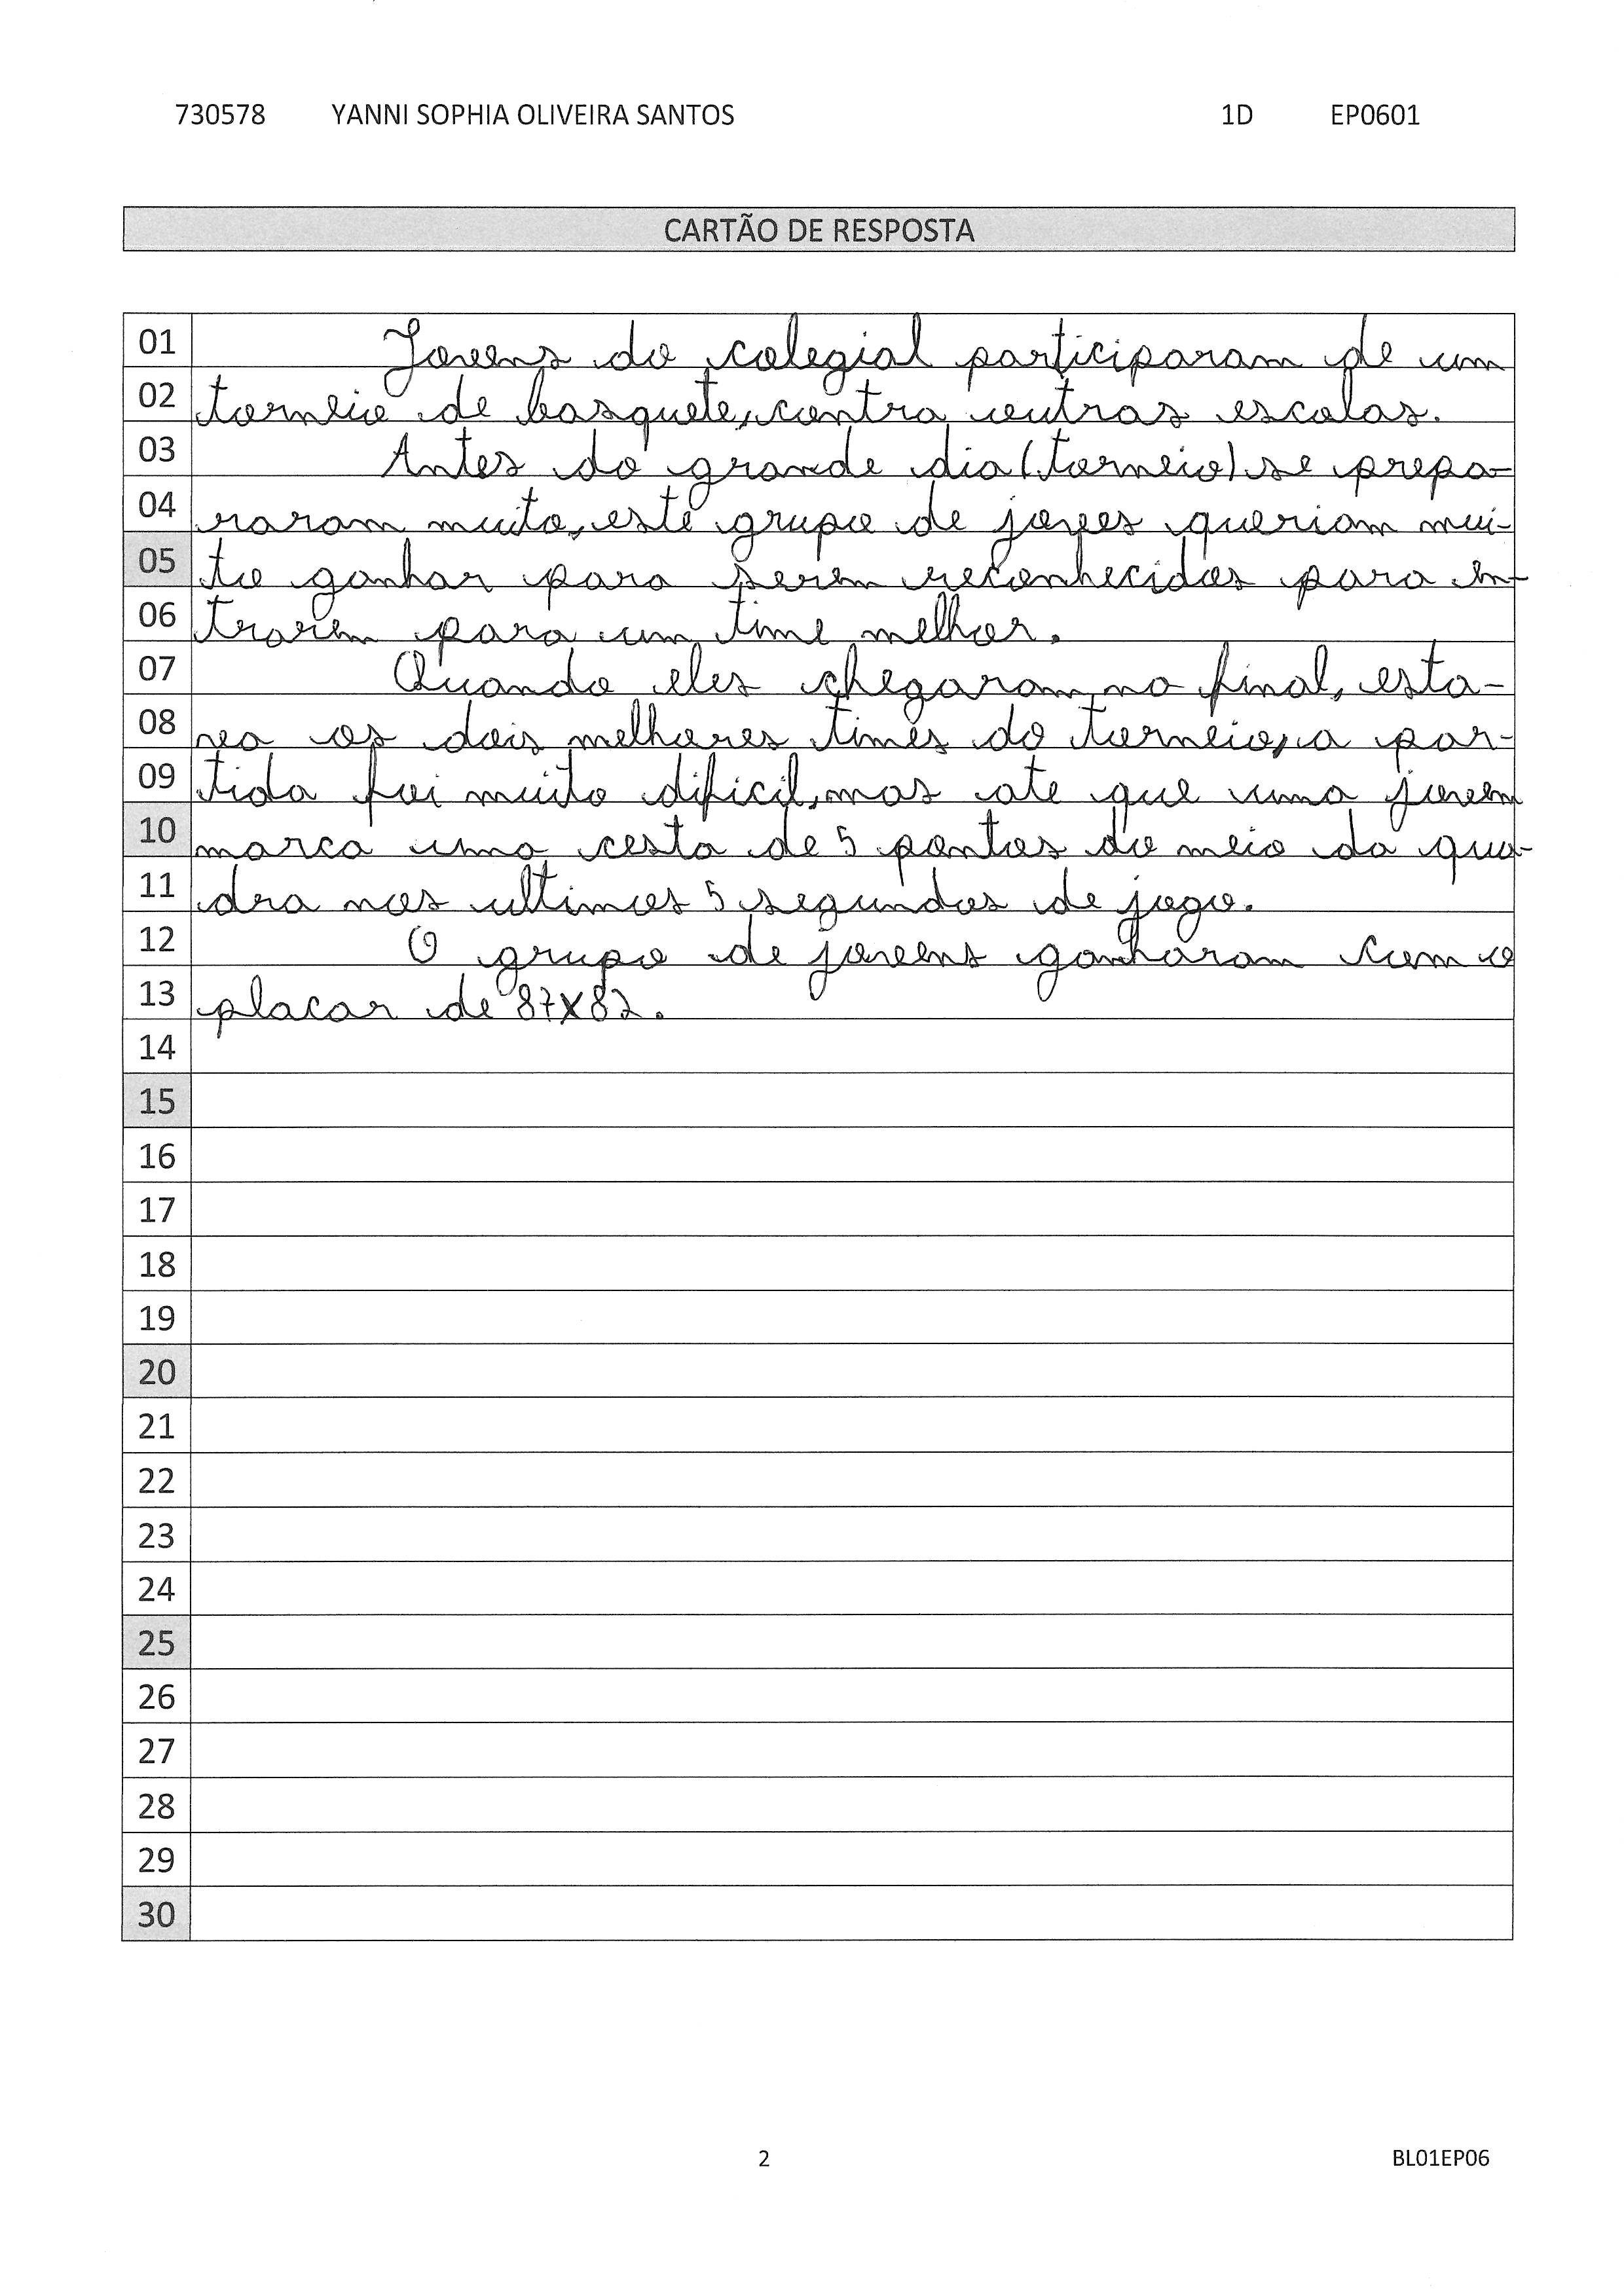 730578 YANNI SOPHIA OLIVEIRA SANTOS 1D EP0601
CARTÃO DE RESPOSTA
01 Jovens do colegial participaram de um
02 torneio de basquete, contra outras escolas.
03 Antes do grande dia (torneio) se prepa-
04 raram muito, este grupo de joves queriam mui-
05 to ganhar para serem reconhecidos para en-
06 trarem para um time melhor.
07 Quando eles chegaram na final, esta-
08 va os dois melhores times do torneio, a par-
09 tida foi muito dificil, mas ate que uma jovem
10 marca uma cesta de 5 pontos do meio da qua-
11 dra nos ultimos 5 segundos de jogo.
12 O grupo de jovens ganharam com o
13 placar de 87x82.
14
15
16
17
18
19
20
21
22
23
24
25
26
27
28
29
30
2 BL01EP06